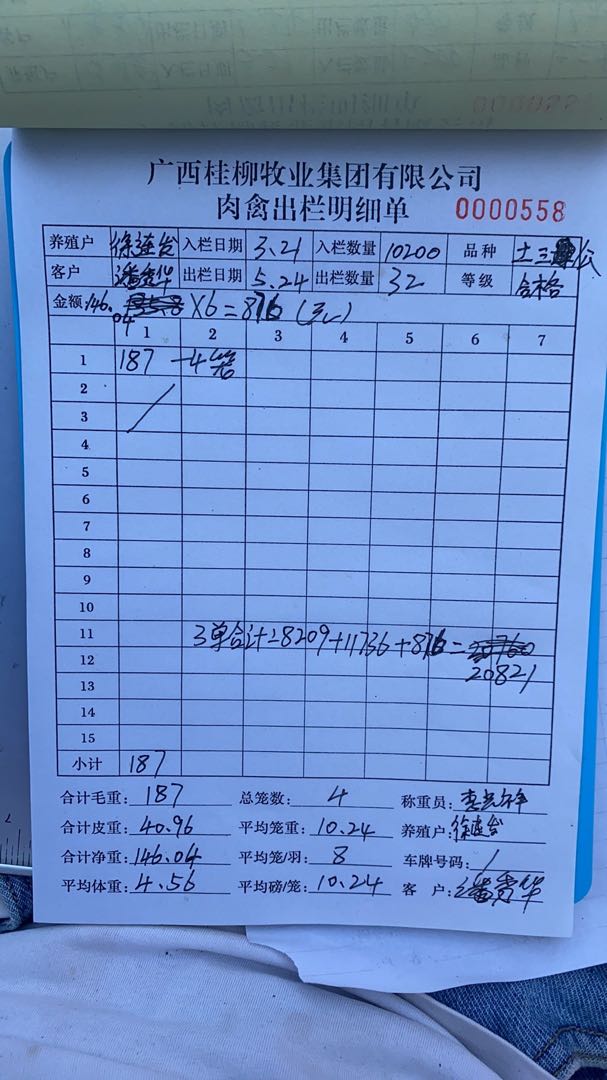 广西桂柳牧业集团有限公司
肉禽出栏明细单 0000558
养殖户 徐连台 入栏日期 3.21 入栏数量 10200 品种 土三 公
客户 潘秀华 出栏日期 5.24 出栏数量 32 等级 合格
金额: 146.04 X6=876
1 2 3 4 5 6 7
1 187 4笼
2
3
4
5
6
7
8
9
10
11 3单合计28209+11736+876=
12 20821
13
14
15
小计 187
合计毛重: 187 总笼数: 4 称重员:
合计皮重: 40.96 平均笼重: 10.24 养殖户: 徐连台
合计净重: 146.04 平均笼/羽: 8 车牌号码: /
平均体重: 4.56 平均磅/笼: 10.24 客 户: 潘秀华